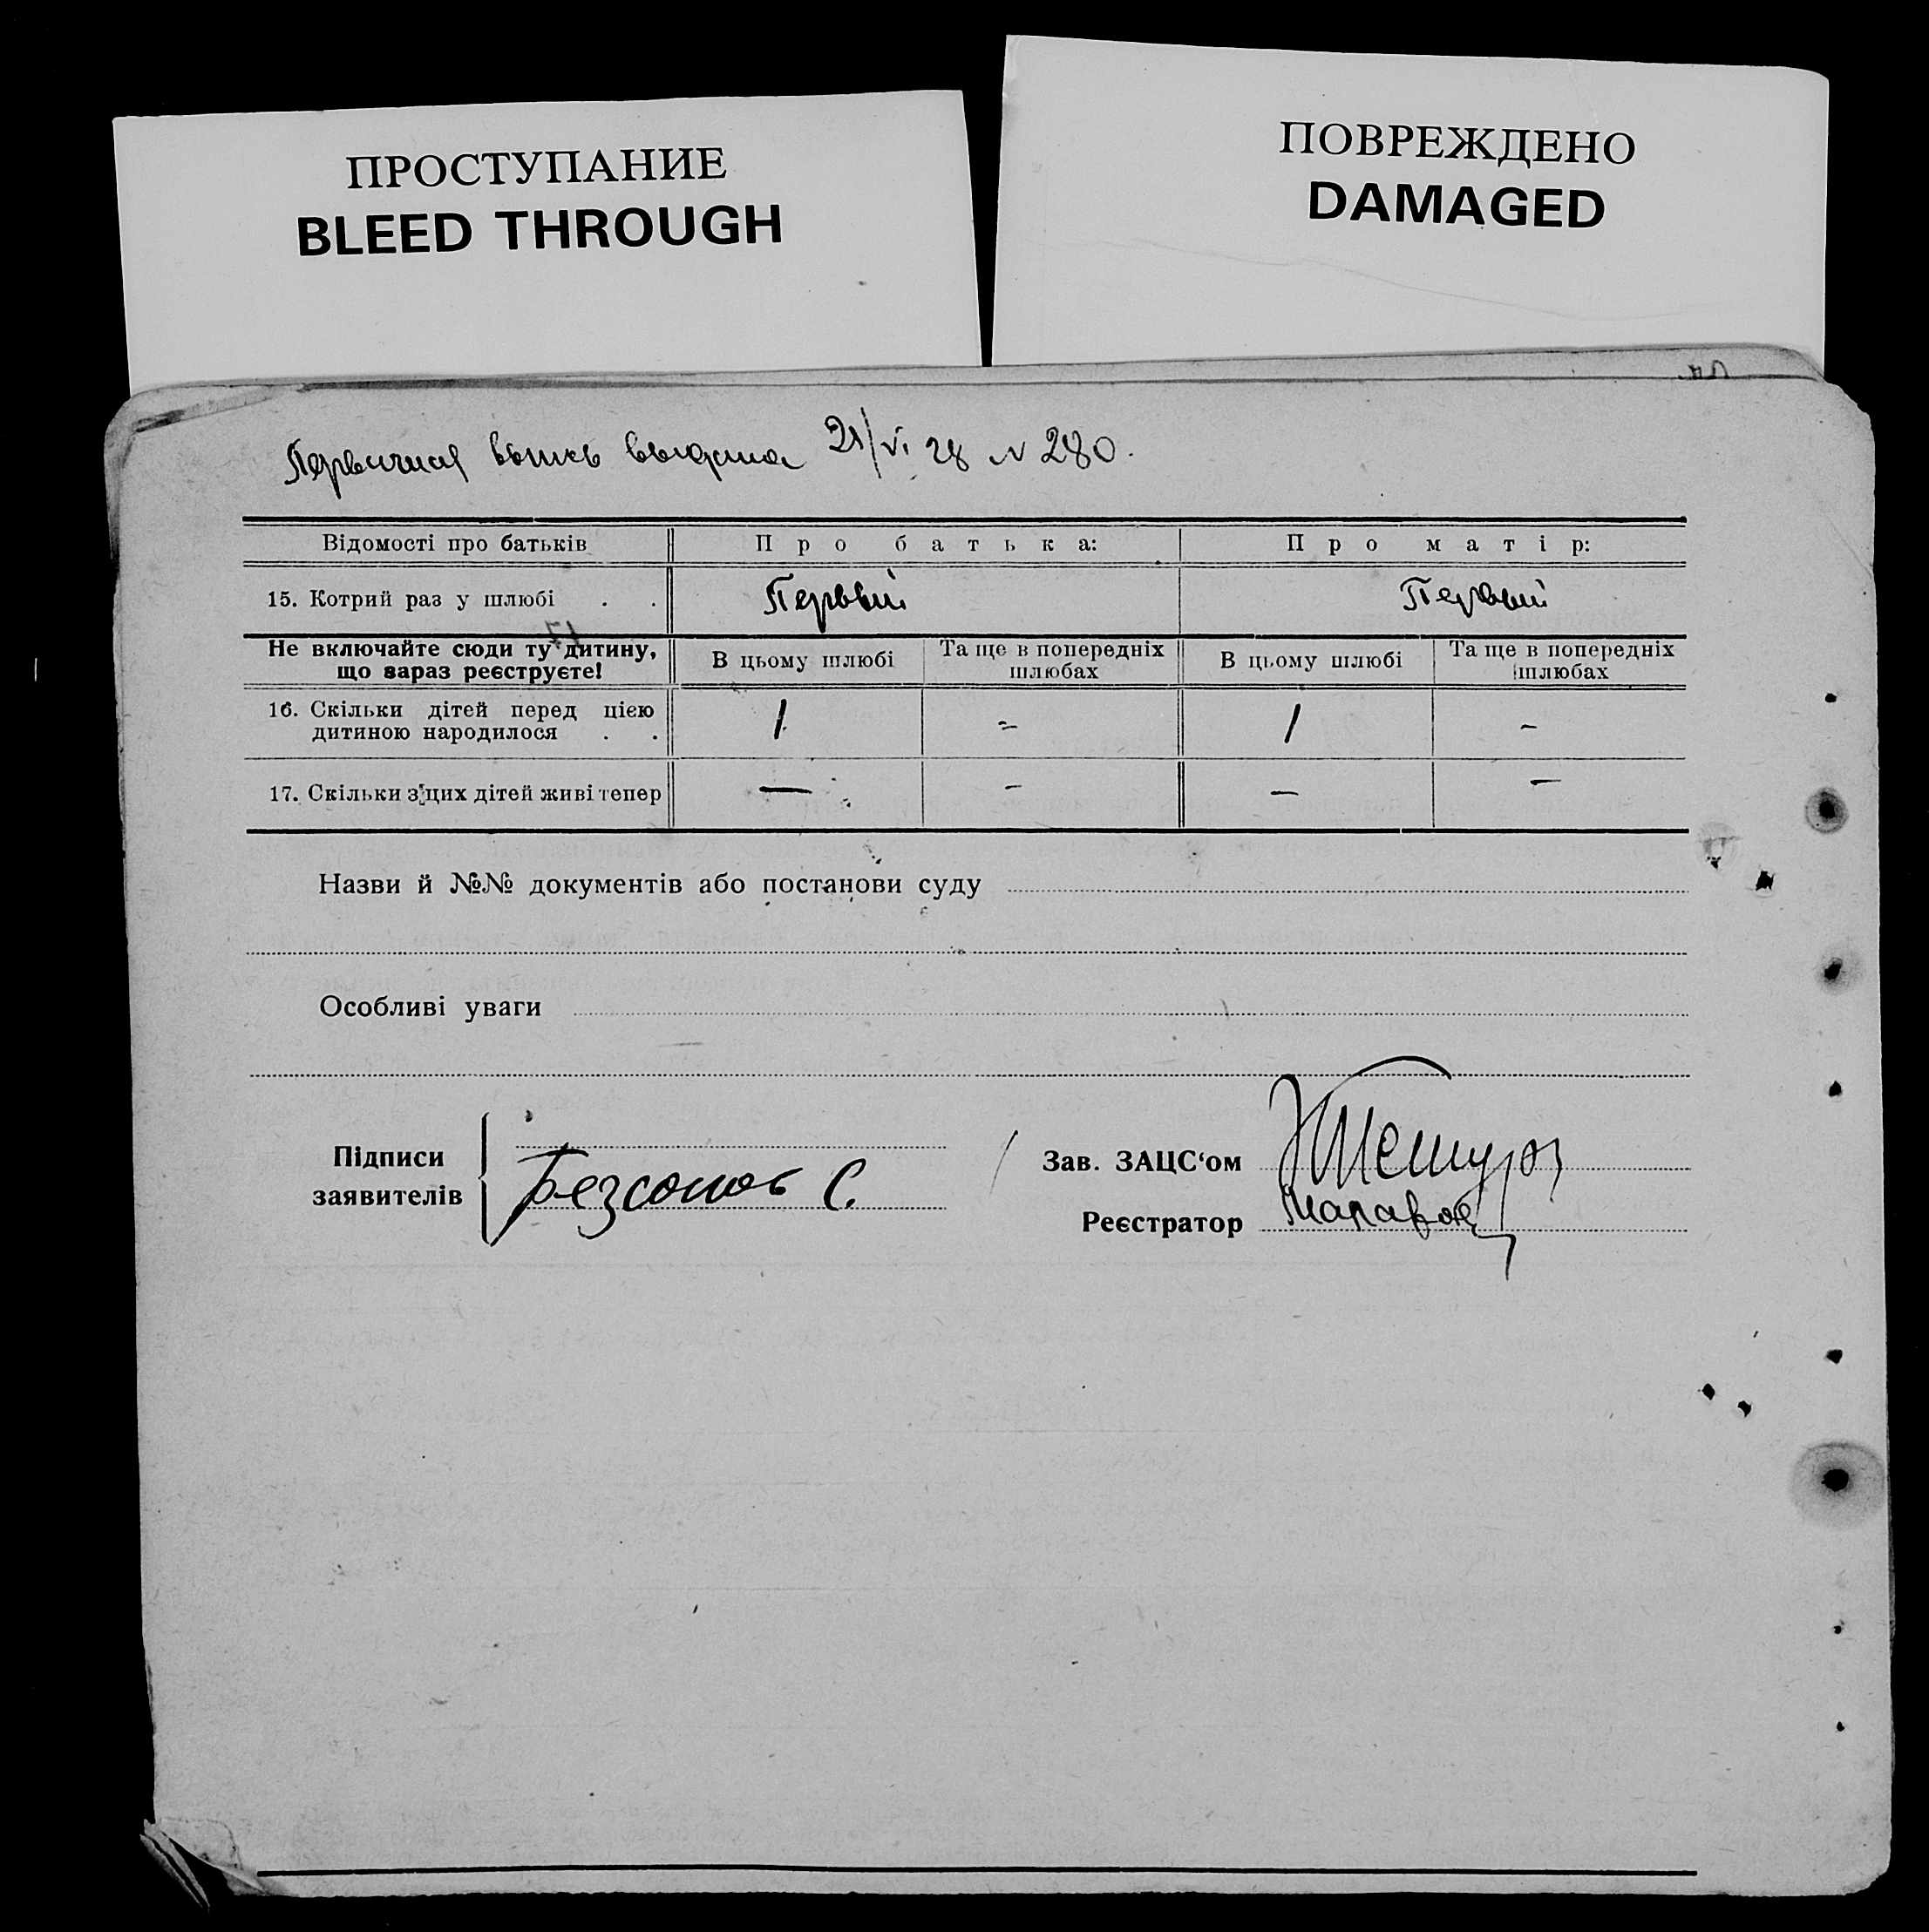 ПРОСТУПАНИЕ
BLEED THROUGH
ПОВРЕЖДЕНО
DAMAGED
Первичная выпись выдана 21/VI 28 № 280.
Відомості про батьків Про батька: Про матір:
15. Котрий раз у шлюбі . . Первый Первый
Не включайте сюди ту дитину, що зараз реєструєте! В цьому шлюбі Та ще в попередніх шлюбах В цьому шлюбі Та ще в попередніх шлюбах
16. Скільки дітей перед цією
дитиною народилося . . 1 - 1 -
17. Скільки з цих дітей живі тепер — - — -
Назви й №№ документів або постанови суду
Особливі уваги
Підписи
заявителів
Безсонов С.
Зав. ЗАЦС‘ом
Реєстратор